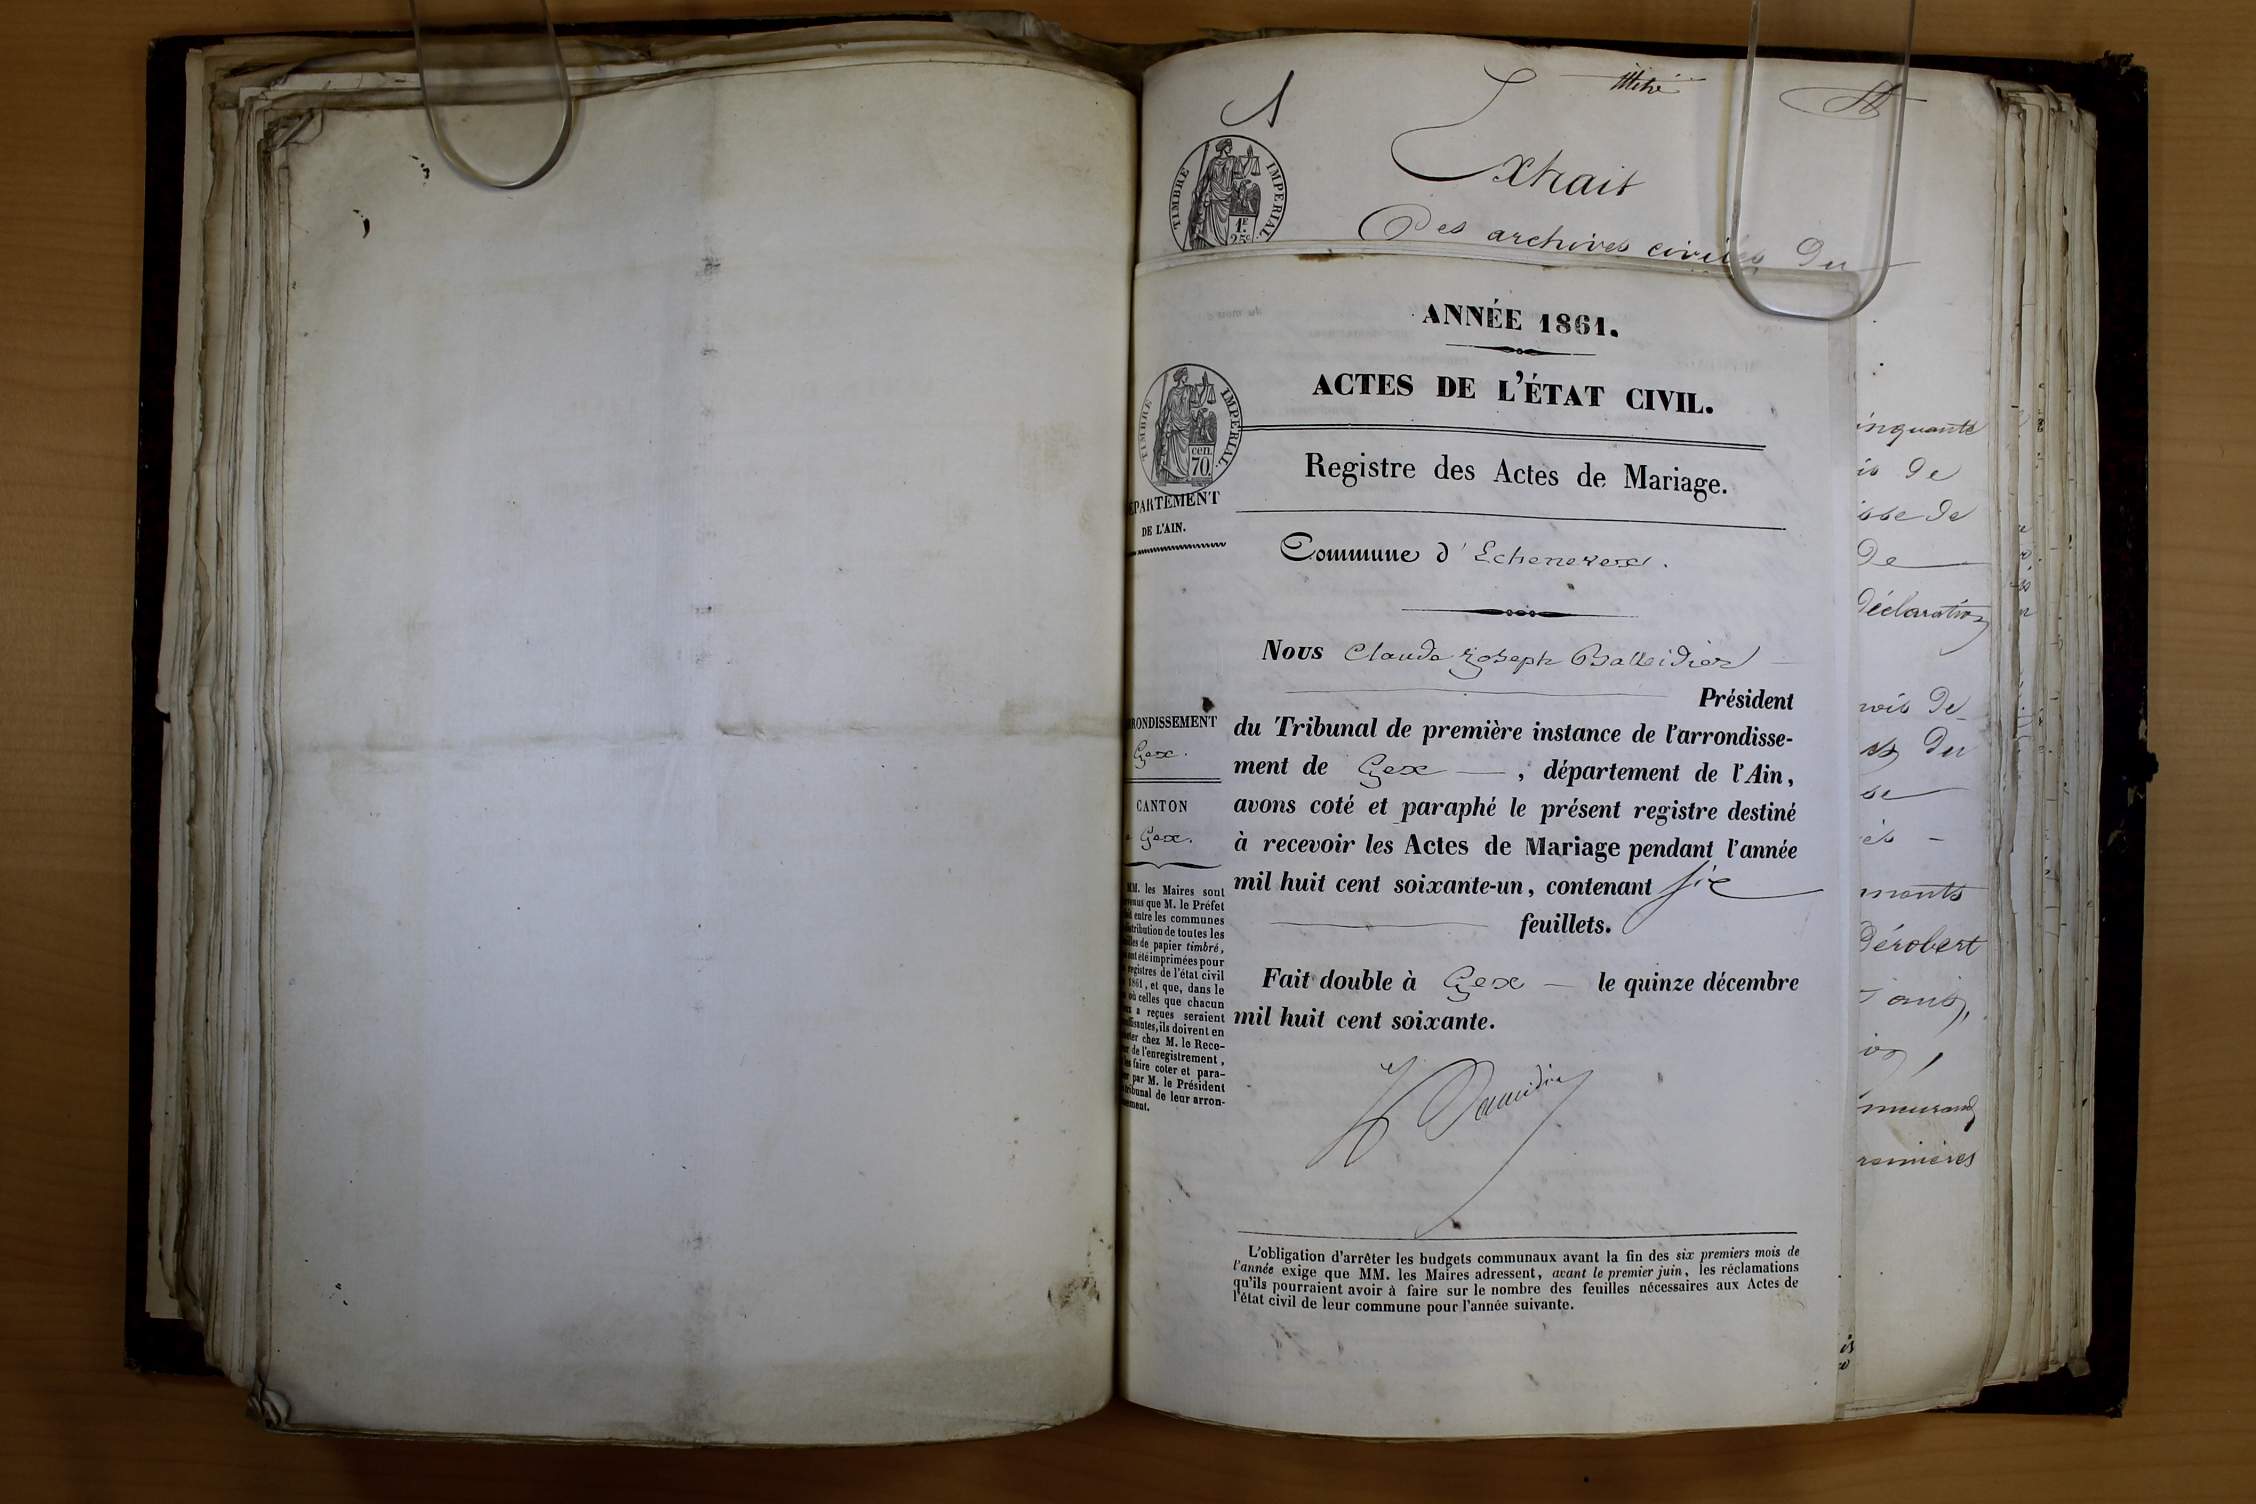 Extrait
Des archives civiles Du
TIMBRE IMPERIAL
1F.
25c
ANNÉE 1861.
ACTES DE L'ÉTAT CIVIL.
TIMBRE IMPERIAL.
cen.
70
Registre des Actes de Mariage.
DÉPARTEMENT
DE L'AIN.
Commune d'Echenevex.
Nous Claude Joseph Balleidier
Président
du Tribunal de première instance de l'arrondisse-
ment de Gex, département de l'Ain,
avons coté et paraphé le présent registre destiné
à recevoir les Actes de Mariage pendant l'année
mil huit cent soixante-un, contenant six
feuillets.
Fait double à Gex le quinze décembre
mil huit cent soixante.
RONDISSEMENT
Gex.
CANTON
Gex.
MM. les Maires sont
venus que M. le Préfet
it entre les communes
stribution de toutes les
illes de papier timbré,
ont été imprimées pour
registres de l'état civil
1861, et que, dans le
où celles que chacun
a reçues seraient
ffisantes, ils doivent en
eter chez M. le Rece-
r de l'enregistrement,
les faire coter et para-
er par M. le Président
tribunal de leur arron-
ssement.
L'obligation d'arrêter les budgets communaux avant la fin des six premiers mois de
l'année exige que MM. les Maires adressent, avant le premier juin, les réclamations
qu'ils pourraient avoir à faire sur le nombre des feuilles nécessaires aux Actes de
l'état civil de leur commune pour l'année suivante.
inquante
is De
sse De
De
Déclaration
rois De
Du
se
ès
ments
Dérobert
meurand
remières